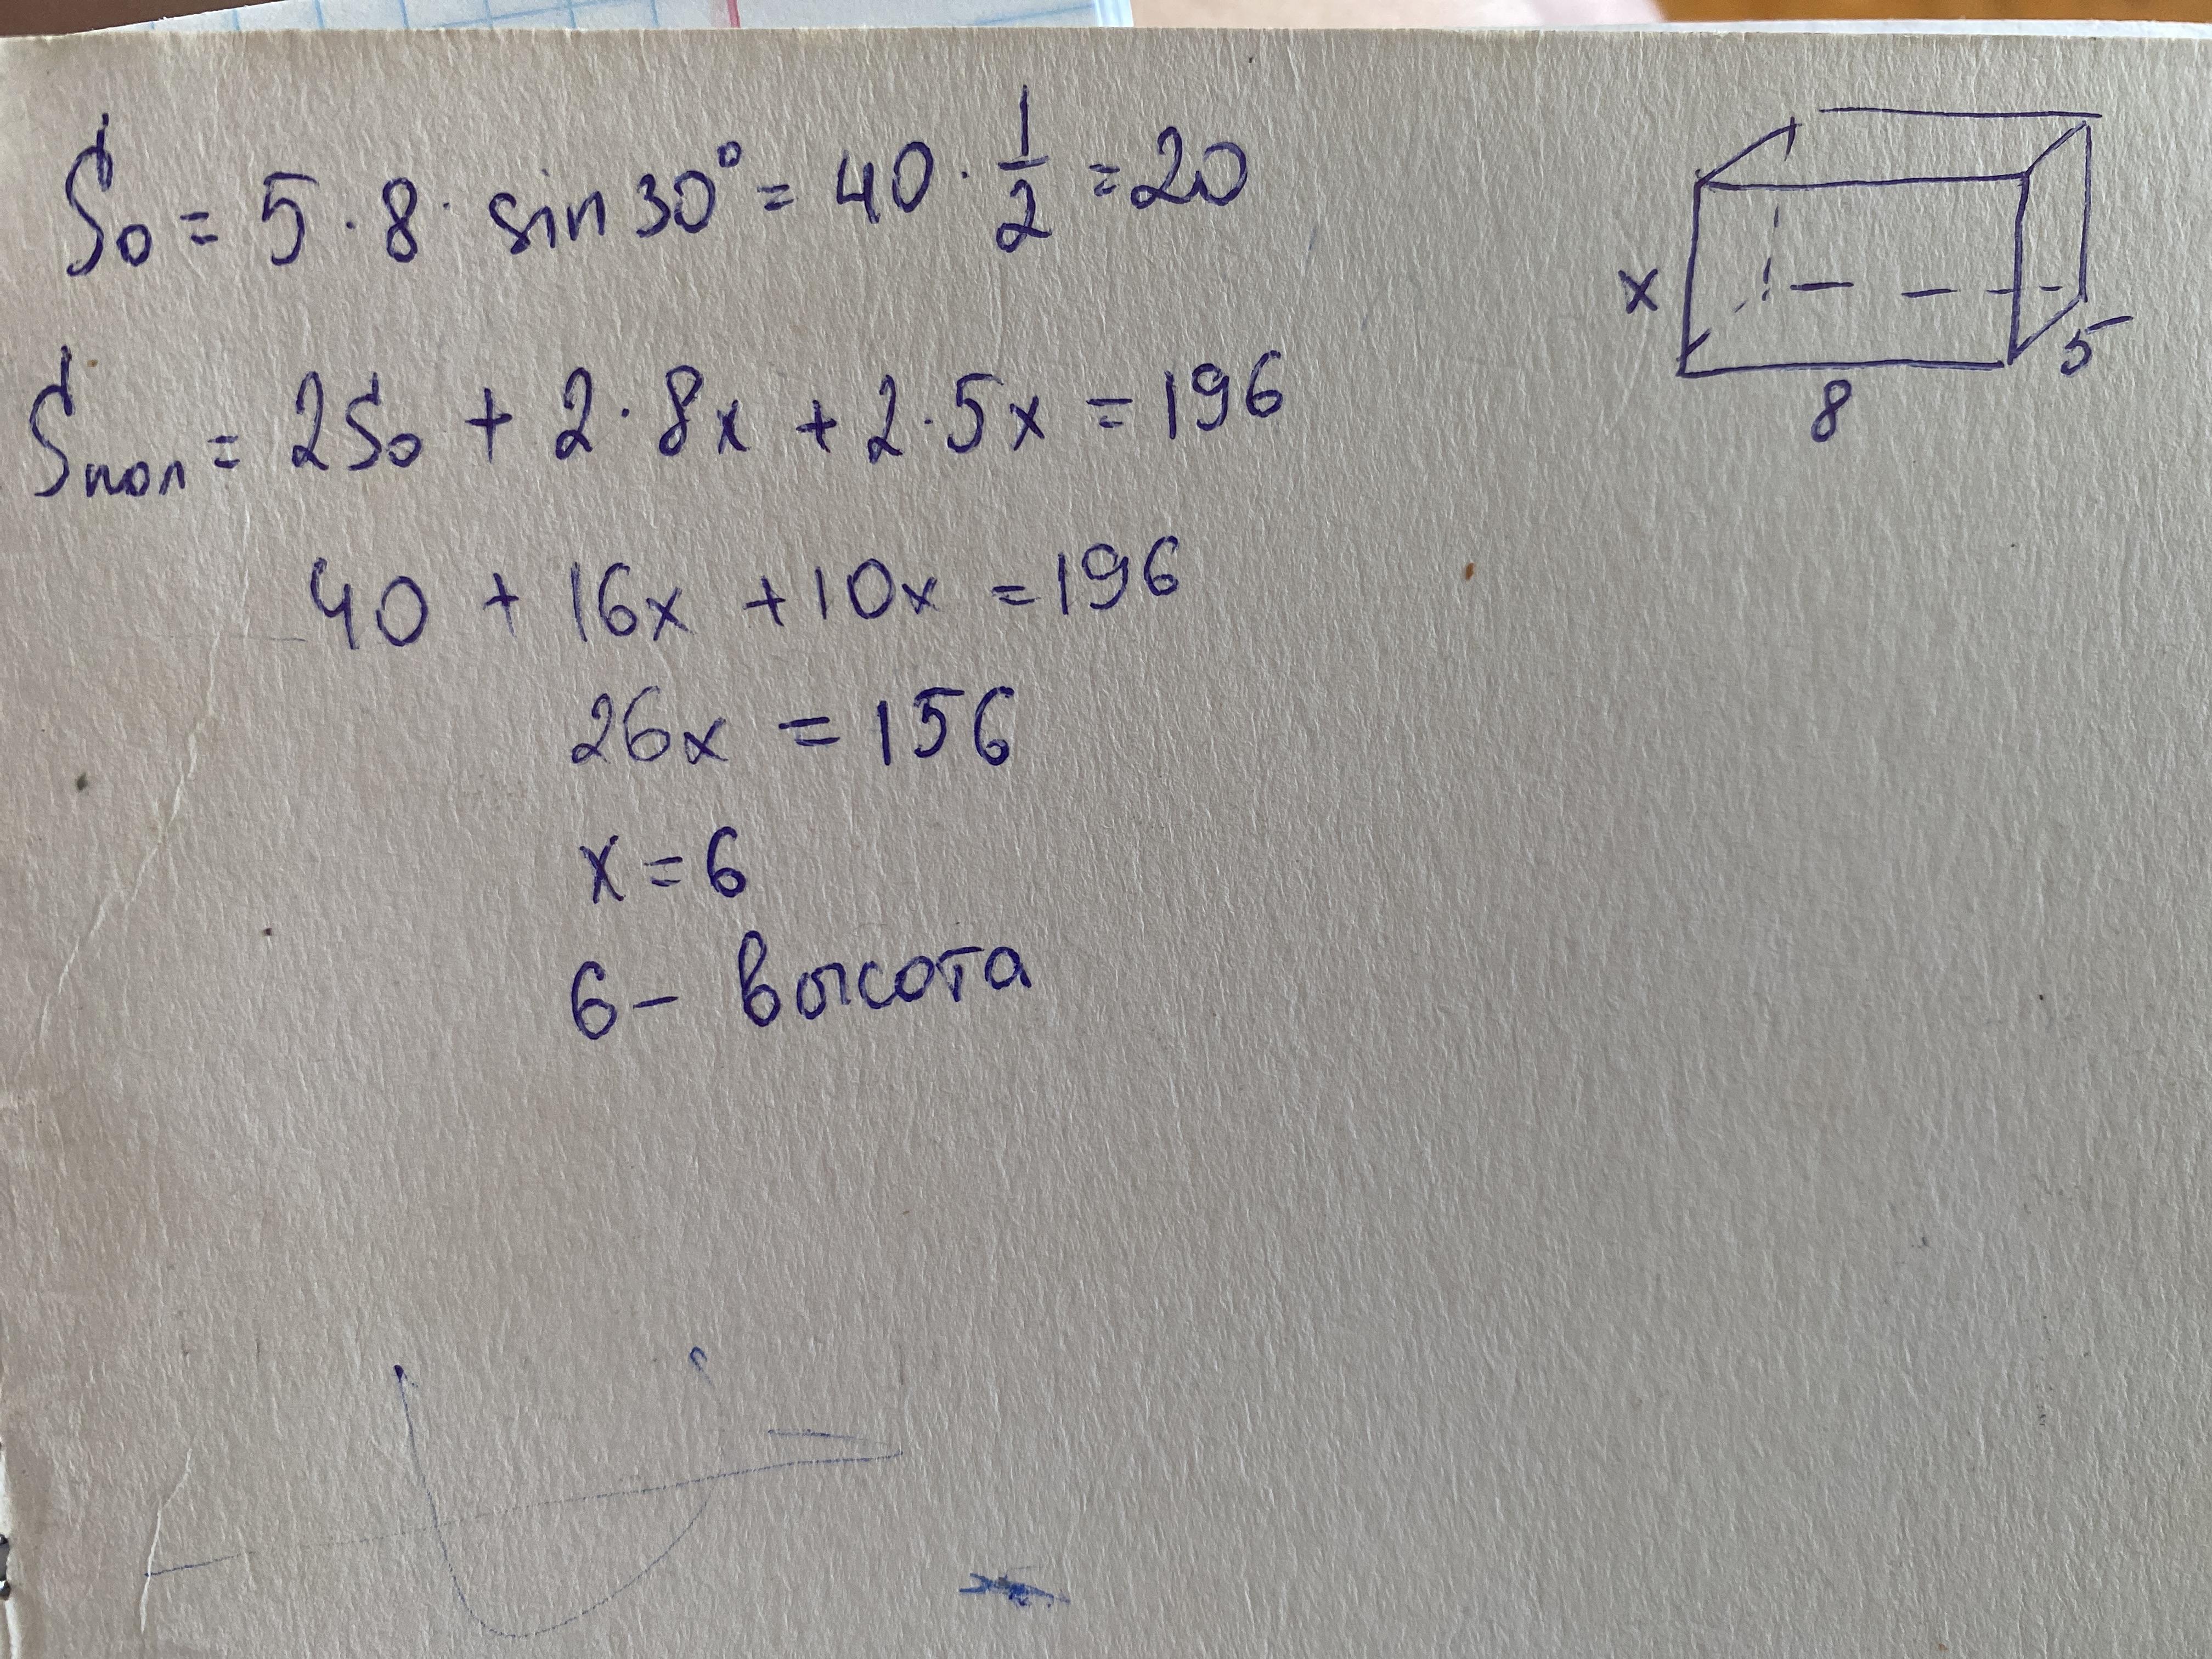 Sо = 5 · 8 · sin 30° = 40 · 1/2 = 20
Sпол = 2Sо + 2 · 8x + 2 · 5x = 196
40 + 16x + 10x = 196
26x = 156
x = 6
6 – высота
x
8
5